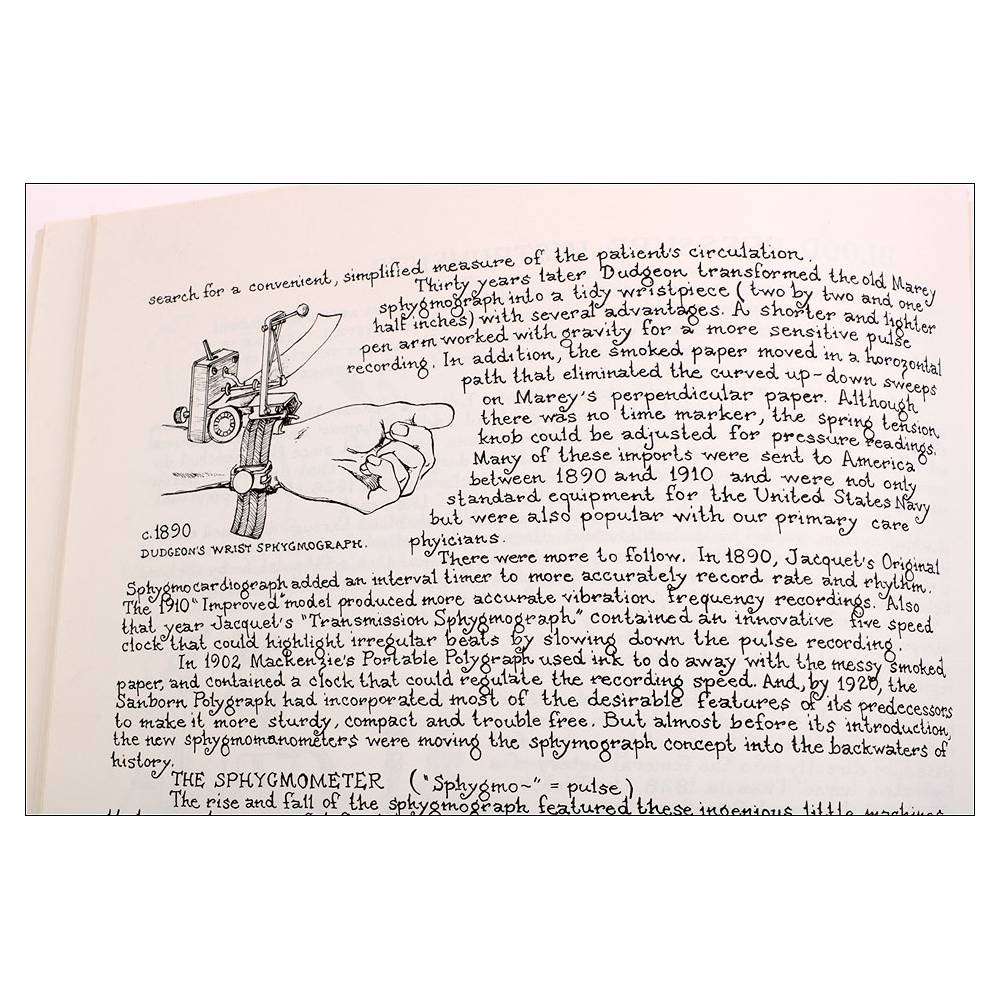 search for a convenient, simplified measure of the patient's circulation.
Thirty years later Dudgeon transformed the old Marey
sphygmograph into a tidy wristpiece (two by two and one
half inches) with several advantages. A shorter and lighter
pen arm worked with gravity for a more sensitive pulse
recording. In addition, the smoked paper moved in a horozontal
path that eliminated the curved up-down sweeps
on Marey's perpendicular paper. Although
there was no time marker, the spring tension
knob could be adjusted for pressure readings.
Many of these imports were sent to America
between 1890 and 1910 and were not only
standard equipment for the United States Navy
but were also popular with our primary care
phyicians.
c.1890
DUDGEON'S WRIST SPHYGMOGRAPH.
There were more to follow. In 1890, Jacquet's Original
Sphygmocardiograph added an interval timer to more accurately record rate and rhythm.
The 1910 "Improved" model produced more accurate vibration frequency recordings. Also
that year Jacquet's "Transmission Sphygmograph" contained an innovative five speed
clock that could highlight irregular beats by slowing down the pulse recording.
In 1902 Mackenzie's Portable Polygraph used ink to do away with the messy smoked
paper, and contained a clock that could regulate the recording speed. And, by 1920, the
Sanborn Polygraph had incorporated most of the desirable features of its predecessors
to make it more sturdy, compact and trouble free. But almost before its introduction,
the new sphygmomanometers were moving the sphymograph concept into the backwaters of
history.
THE SPHYGMOMETER ("Sphygmo~" = pulse)
The rise and fall of the sphygmograph featured these ingenious little machines